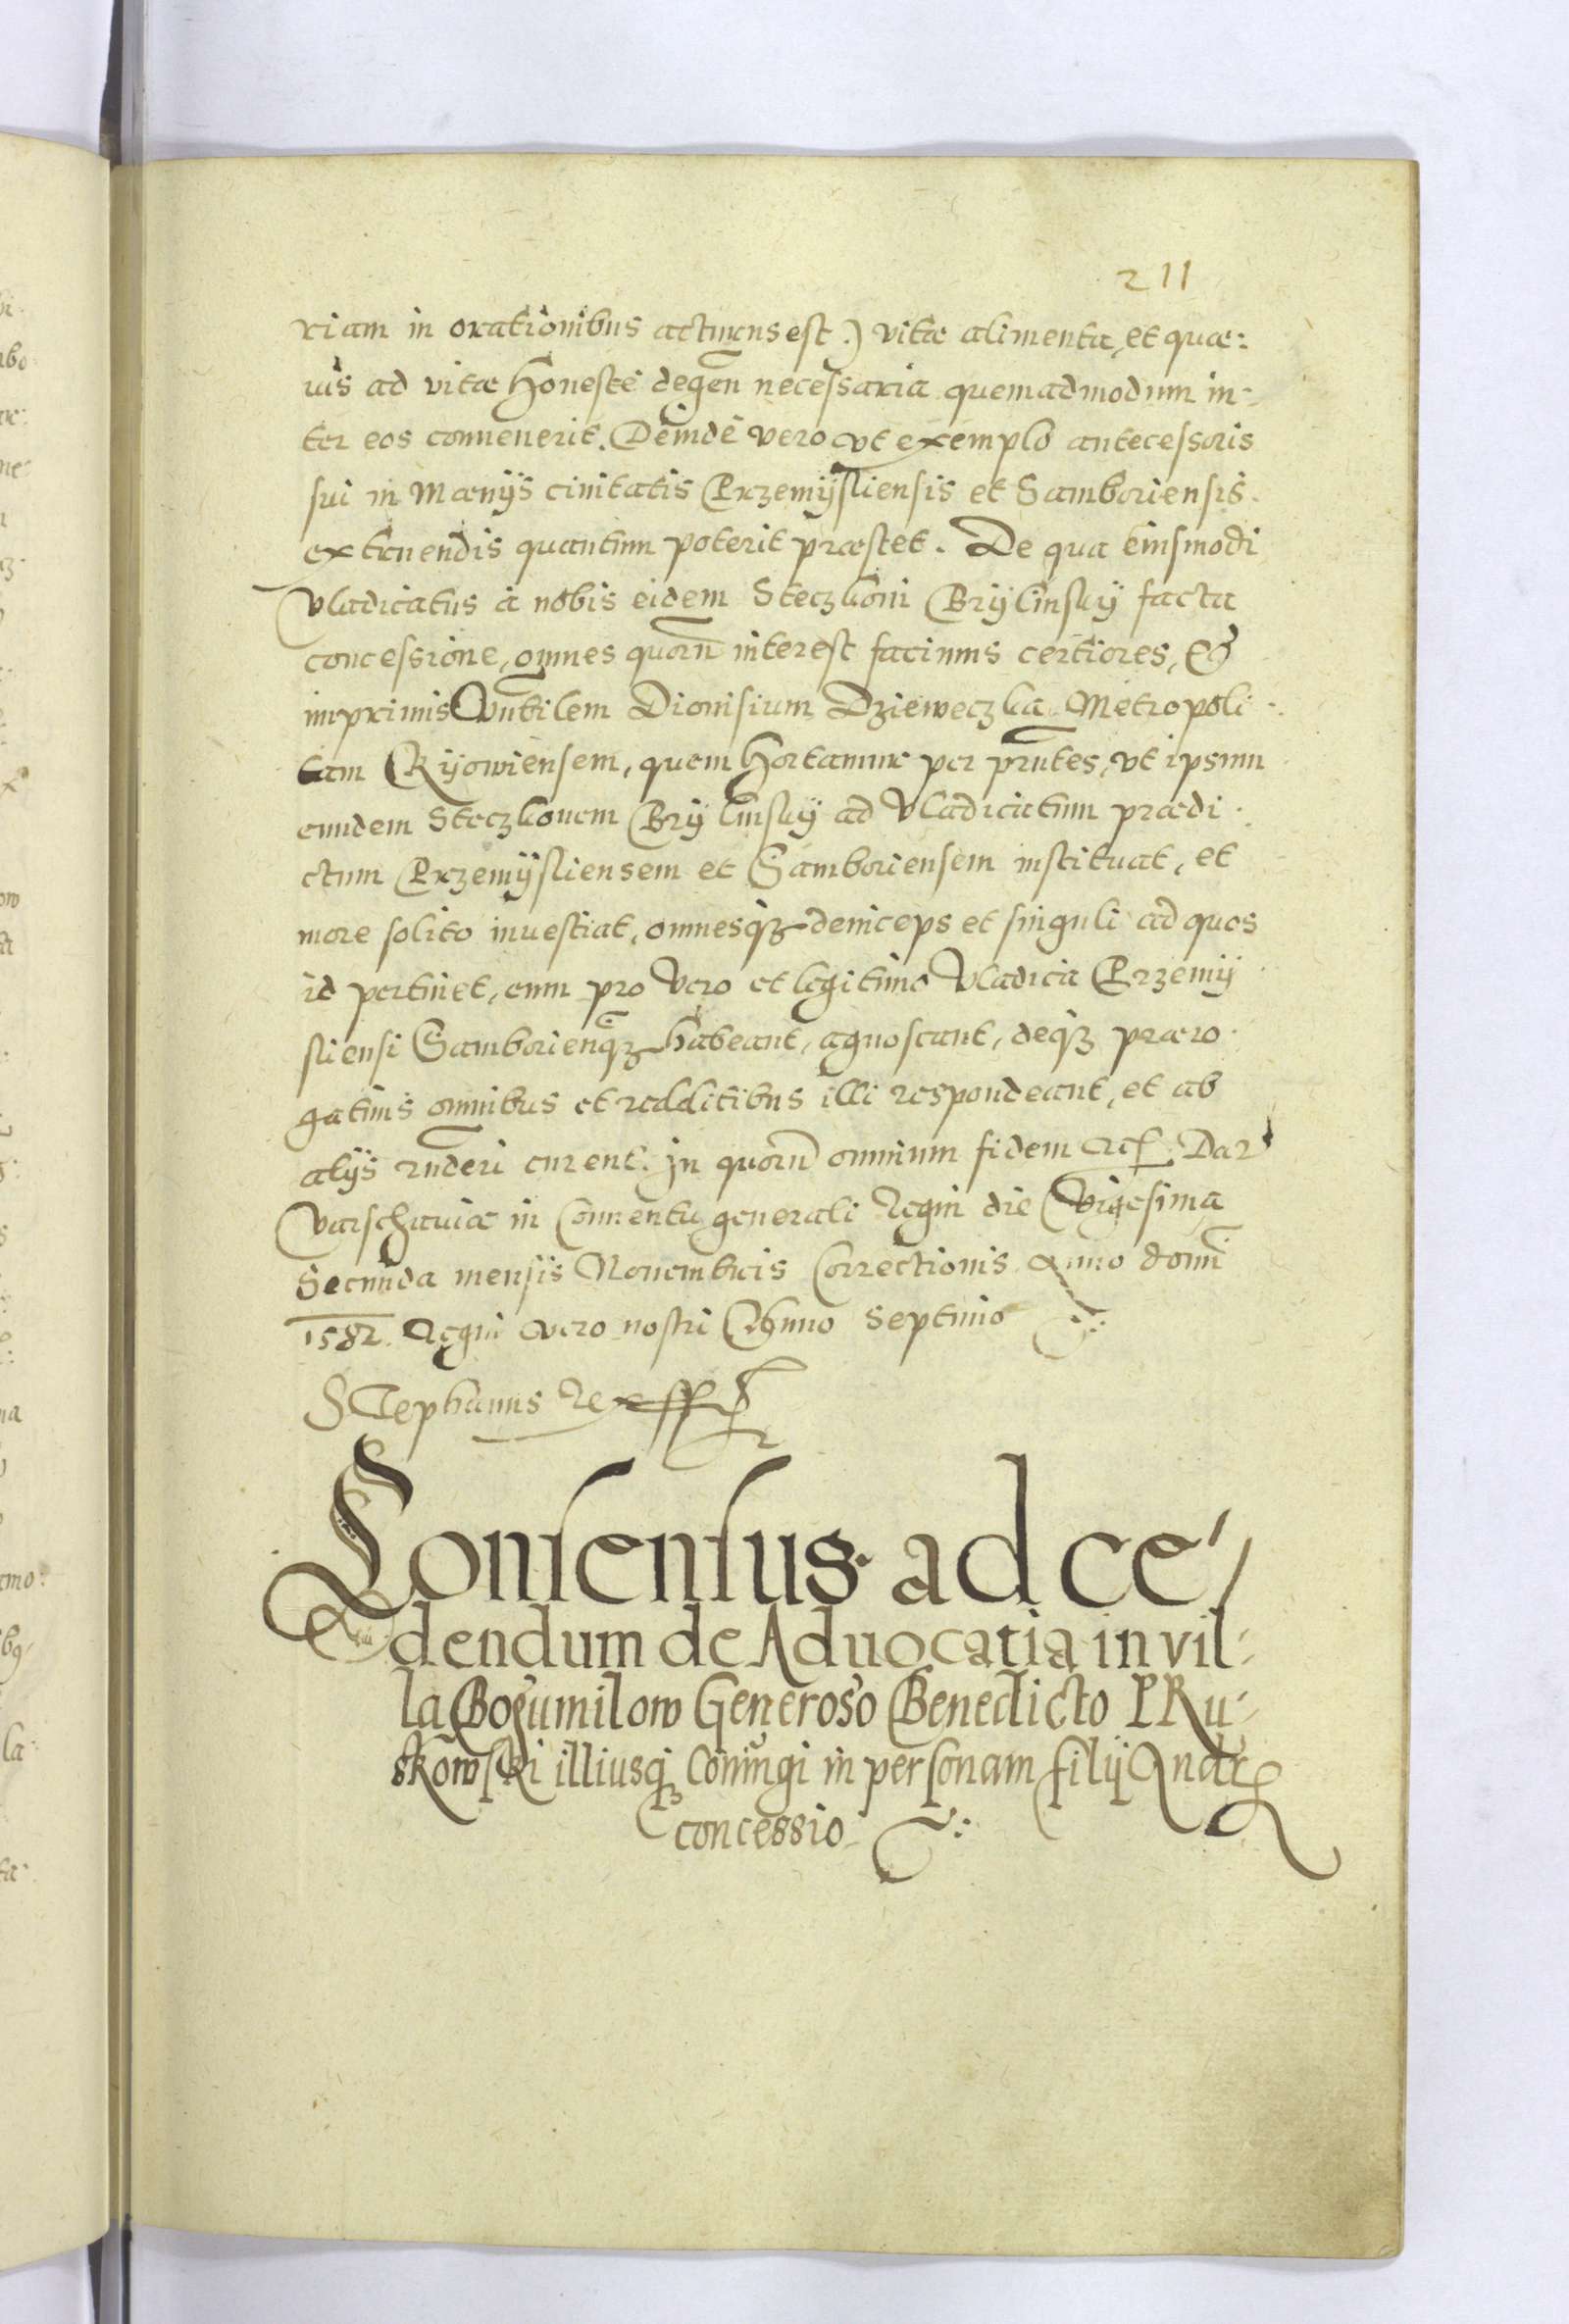 211
riam in orationibus acturus est.) vitæ alimenta, et quæ:
uis ad vitæ honeste degen necessaria quemadmodum in-
ter eos conuenerit. Deinde vero vt exemplo antecessoris
sui in Mænijs ciuitatis Przemijsliensis et Samboriensis
extruendis quantum poterit præstet. De qua eiusmodi
Vladicatus à nobis eidem Steczkoni Brijlinskij facta
concessione, omnes quorũ interest facimus certiores, Et
imprimis Vnbilem Dionisium Dzieweczka Metropoli-
tam Kijowiensem, quem hortamur per prñtes, vt ipsum
eundem Steczkonem Brijlinskij ad Vladicatum prædi-
ctum Przemijsliensem et Samboriensem instituat, et
more solito inuestiat, omnesqȝ deinceps et singuli ad quos
id pertinet, eum pro vero et legitimo Vladica Przemij
sliensi Samborienqȝ habeant, agnoscant, deqȝ præro-
gatiuis omnibus et redditibus illi respondeant, et ab
alijs rñderi curent. In quorũ omnium fidem etc. Dat
Varschauiæ in Conuentu generali Regni die Vigesima
Secunda mensis Nouembris Correctionis Anno domi
1582. Regni vero nostri Anno Septimo
Stephanus Rex sst
Consensus ad ce/
dendum de Aduocatia in vil-
la Bogumilow Generoso Benedicto PRu-
skowski illiusqȝ Coniugi in personam filij Andr
concessio